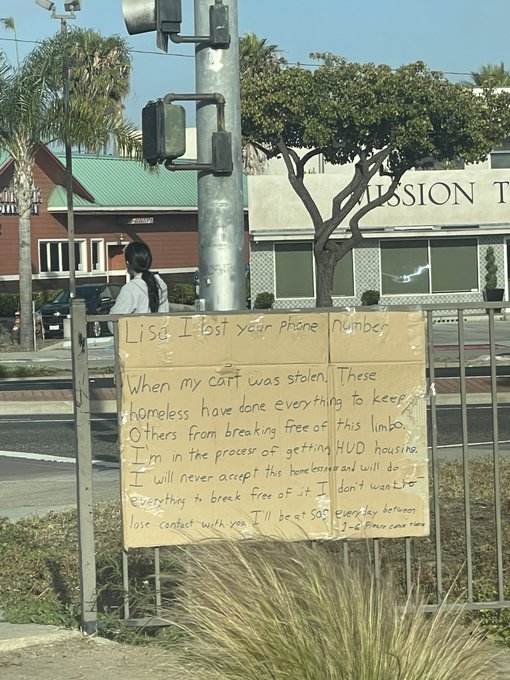 MISSION T
Lisa I lost your phone number
When my cart was stolen. These
homeless have done everything to keep
Others from breaking free of this limbo.
I'm in the process of getting HUD housing.
I will never accept this homelessness and will do
everything to break free of it. I don't want to
lose contact with you I'll be at SOS everyday between
1-6 Please come there